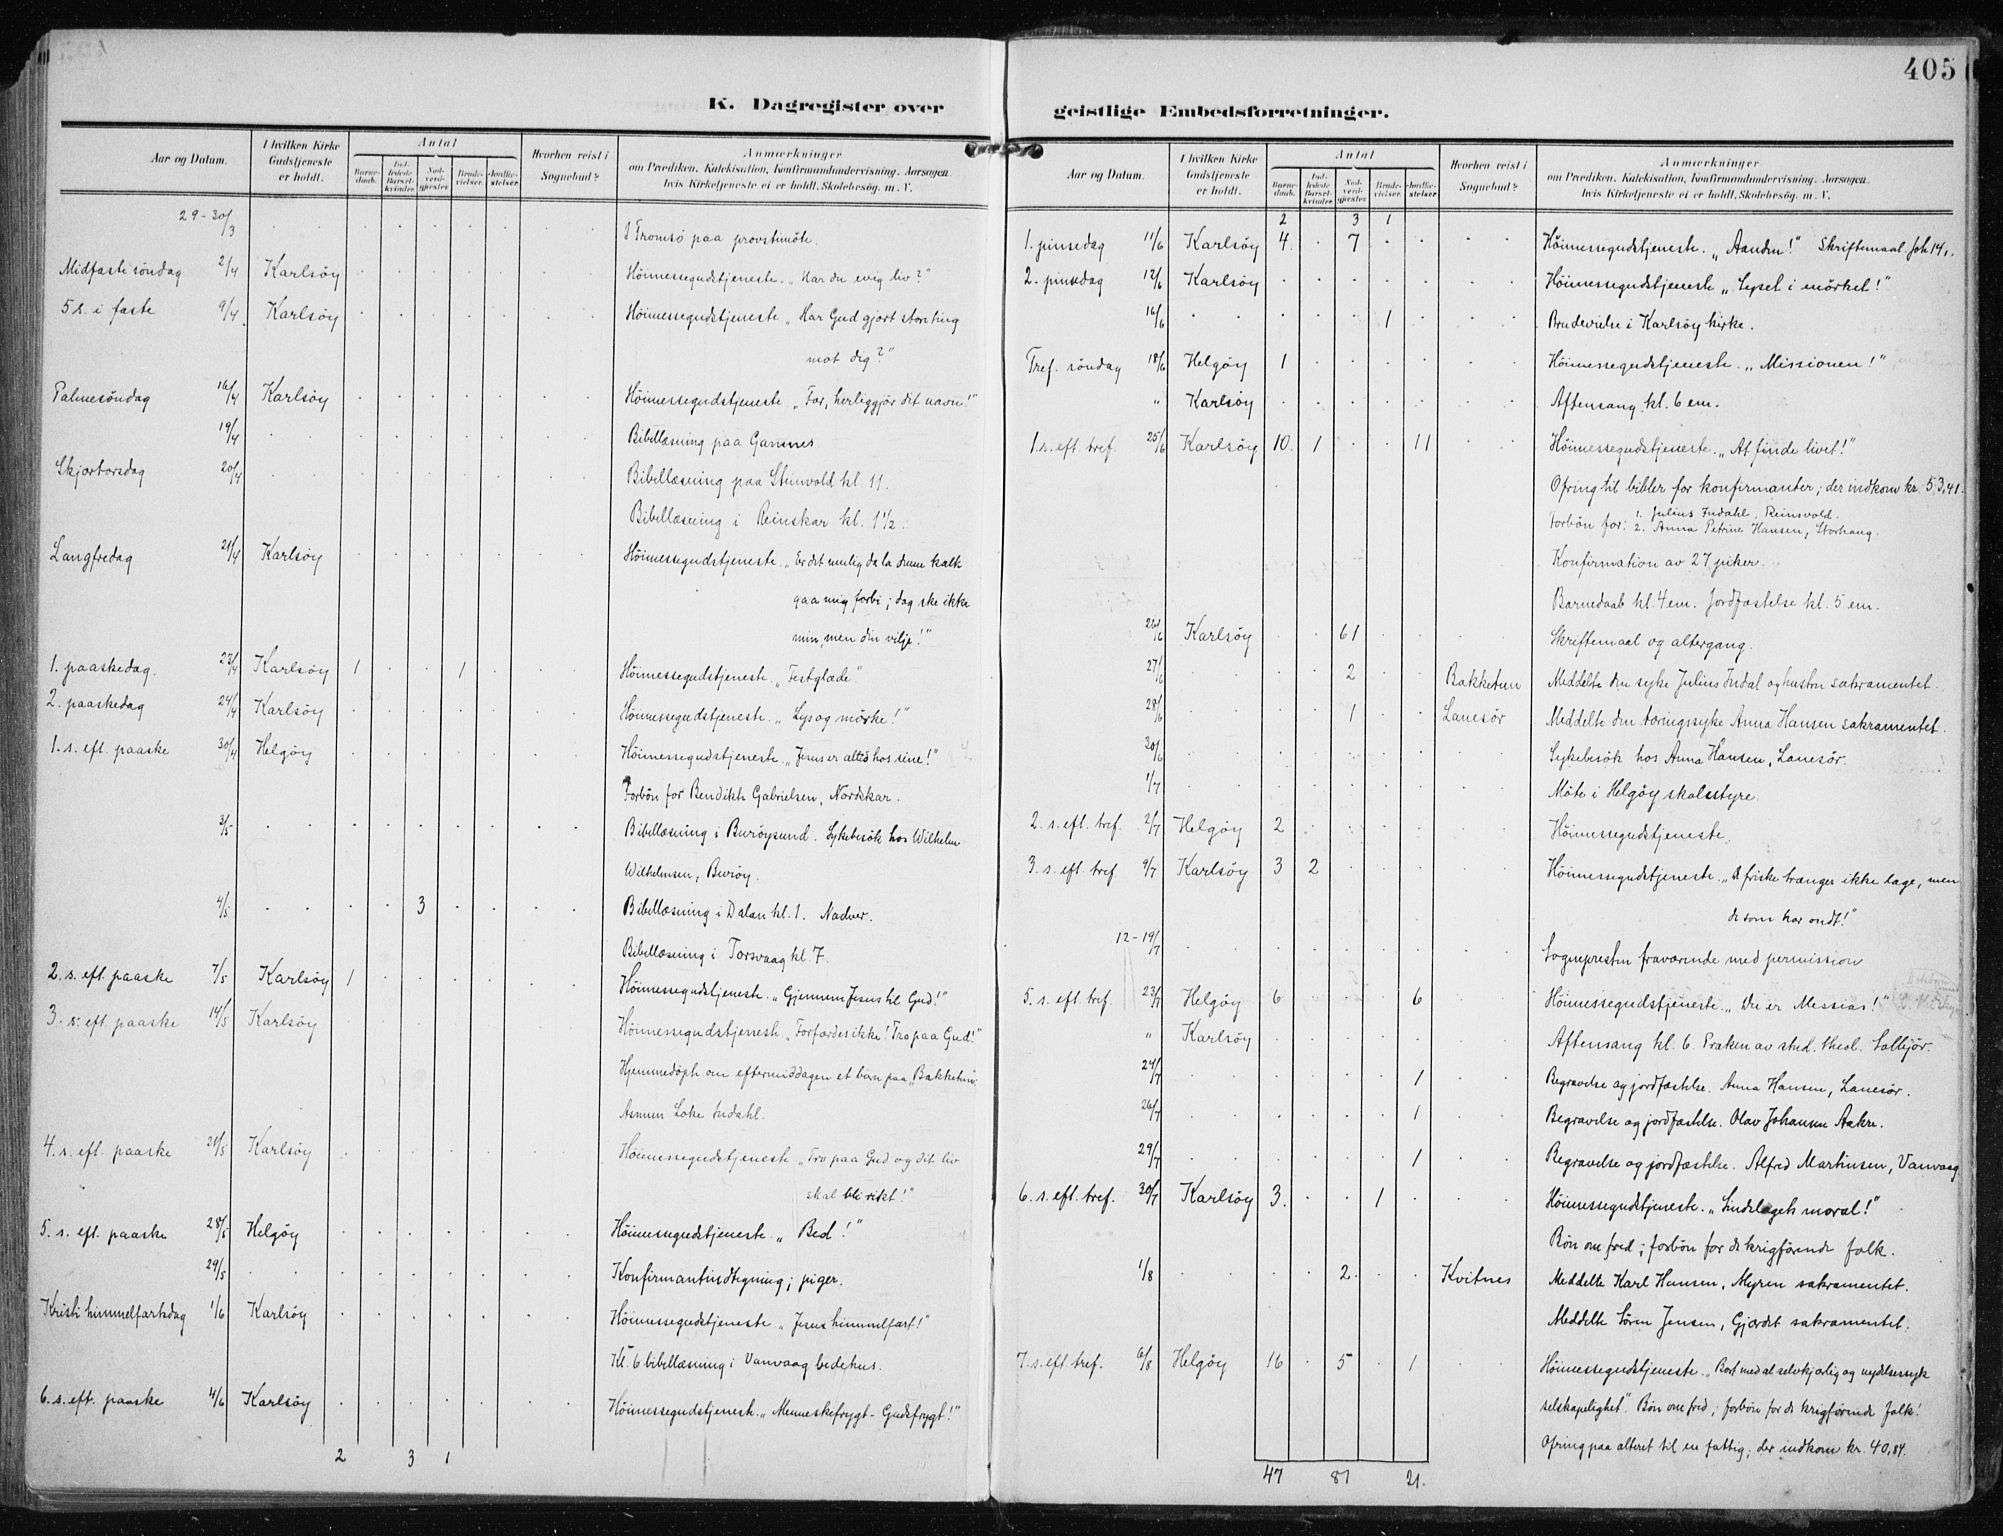 405
K. Dagregister over geistlige Embedsforretninger.
Aar og Datum. I hvilken Kirke Gudstjeneste er holdt. Antal Barnedaab. Indledede Barselkvinder. Nadverdgjester. Brudevielser. Jordfæstelser. Hvorhen reist i Sognebud? Anmærkninger om Prædiken, Katekisation, Konfirmandundervisning. Aarsagen hvis Kirketjeneste ei er holdt. Skolebesøg. m. V.
29-30/3 I Tromsö paa provstimöte.
Midfaste söndag 2/4 Karlsöy Höimessegudstjeneste. „Har du evig liv?"
5 s. i faste 9/4 Karlsöy Höimessegudstjeneste „Har Gud gjort storting
mot dig?"
Palmesöndag 16/4 Karlsöy Höimessegudstjeneste „Far, herliggjör dit navn!"
19/4 Bibellæsning paa Gamnes.
Skjærtorsdag 20/4 Bibellæsning paa Steinvold kl. 11.
Bibellæsning i Reinskar kl. 1½.
Langfredag 21/4 Karlsöy Höimessegudstjeneste „Er det mulig da la denne kalk
gaa mig forbi; dog ske ikke
min, men din vilje!"
1. paaskedag. 23/4 Karlsöy 1 1 Höimessegudstjeneste. „Festglæde"
2. paaskedag 24/4 Karlsöy Höimessegudstjeneste. „Lys og mörke!"
1. s. eft. paaske 30/4 Helgöy Höimessegudstjeneste. „Jesus er altid hos sine!"
Forbön for Bendikte Gabrielsen, Nordskar.
3/5 Bibellæsning i Buröysund. Sykebesök hos Wilhelm
Wilhelmsen, Buröy.
4/5 3 Bibellæsning i Dalan kl. 1. Nadver.
Bibellæsning i Torsvaag kl. 7.
2. s. eft. paaske 7/5 Karlsöy 1 Höimessegudstjeneste. „Gjennem Jesus til Gud!"
3. s. eft. paaske 14/5 Karlsöy Höimessegudstjeneste „Forfærdes ikke! Tro paa Gud!"
Hjemmedöpte om eftermiddagen et barn paa „Bakketun",
Asmun Loke Indahl.
4. s. eft. paaske 21/5 Karlsöy Höimessegudstjeneste „Tro paa Gud og dit liv
skal bli rikt!"
5. s. eft. paaske 28/5 Helgöy Höimessegudstjeneste „Bed!"
29/5 Konfirmantindtegning; piger.
Kristi himmelfartsdag 1/6 Karlsöy Höimessegudstjeneste „Jesus himmelfart!"
Kl. 6 bibellæsning i Vanvaag bedehus.
6. s. eft. paaske 4/6 Karlsöy Höimessegudstjeneste „Menneskefrygt - Gudsfrygt!"
2 3 1
Aar og Datum. I hvilken Kirke Gudstjeneste er holdt. Antal Barnedaab. Indledede Barselkvinder. Nadverdgjester. Brudevielser. Jordfæstelser. Hvorhen reist i Sognebud? Anmærkninger om Prædiken, Katekisation, Konfirmandundervisning. Aarsagen hvis Kirketjeneste ei er holdt. Skolebesøg. m. V.
2 3 1
1. pinsedag 11/6 Karlsöy 4 7 Höimessegudstjeneste. „Aanden!" Skriftemaal Joh 14,1.
2. pinsedag 12/6 Karlsöy Höimessegudstjeneste „Lyset i mörket!"
16/6 1 Brudevielse i Karlsöy kirke.
Tref. söndag 18/6 Helgöy 1 Höimessegudstjeneste. „Missionen!"
" Karlsöy Aftensang kl. 6 em.
1. s. eft. tref. 25/6 Karlsöy 10 1 11 Höimessegudstjeneste. „At finde livet!"
Ofring til bibler for konfirmanter; der indkom kr. 53,41.
Forbön for: 1. Julius Indahl, Reinsvold.
2. Anna Petrine Hansen, Storhaug.
Konfirmation av 27 piker.
Barnedaab kl. 4 em. Jordfæstelse kl. 5 em.
26/6 Karlsöy 61 Skriftemaal og altergang.
27/6 2 Bakketun Meddelte den syke Julius Indal og hustru sakramentet.
28/6 1 Lanesör Meddelte den tæringssyke Anna Hansen sakramentet.
30/6 Sykebesök hos Anna Hansen, Lanesör.
1/7 Möte i Helgöy skolestyre.
2. s. eft. tref. 2/7 Helgöy 2 Höimessegudstjeneste.
3. s. eft. tref 9/7 Karlsöy 3 2 Höimessegudstjeneste. „De friske trænger ikke læge, men
de som har ondt!"
12-19/7 Sogneprestn fraværende med permission
5. s. eft. tref. 23/7 Helgöy 6 6 Höimessegudstjeneste. „Du er Messias!"
" Karlsöy Aftensang kl. 6. Præken av stud. theol.
24/7 1 Begravelse og jordfæstelse. Anna Hansen, Lanesör.
26/7 1 Begravelse og jordfæstelse. Olav Johansen Aakre.
29/7 1 Begravelse og jordfæstelse. Alfred Martinsen, Vanvaag
6. s. eft. tref. 30/7 Karlsöy 3 1 Höimessegudstjeneste. „Sindelagets moral!"
Bön om fred; forbön for de krigförende folk.
1/8 2 Kvitnes Meddelte Karl Hansen, Myren sakramentet.
Meddelte Sören Jensen, Gjærdet sakramentet.
7. s. eft. tref. 6/8 Helgöy 16 5 1 Höimessegudstjeneste „Bort med al selvkjærlig og nydelsessyk
selskapelighet". Bön om fred; forbön for de krigförende folk!
Ofring paa alteret til en fattig; der indkom kr. 40,84.
47 81 21.